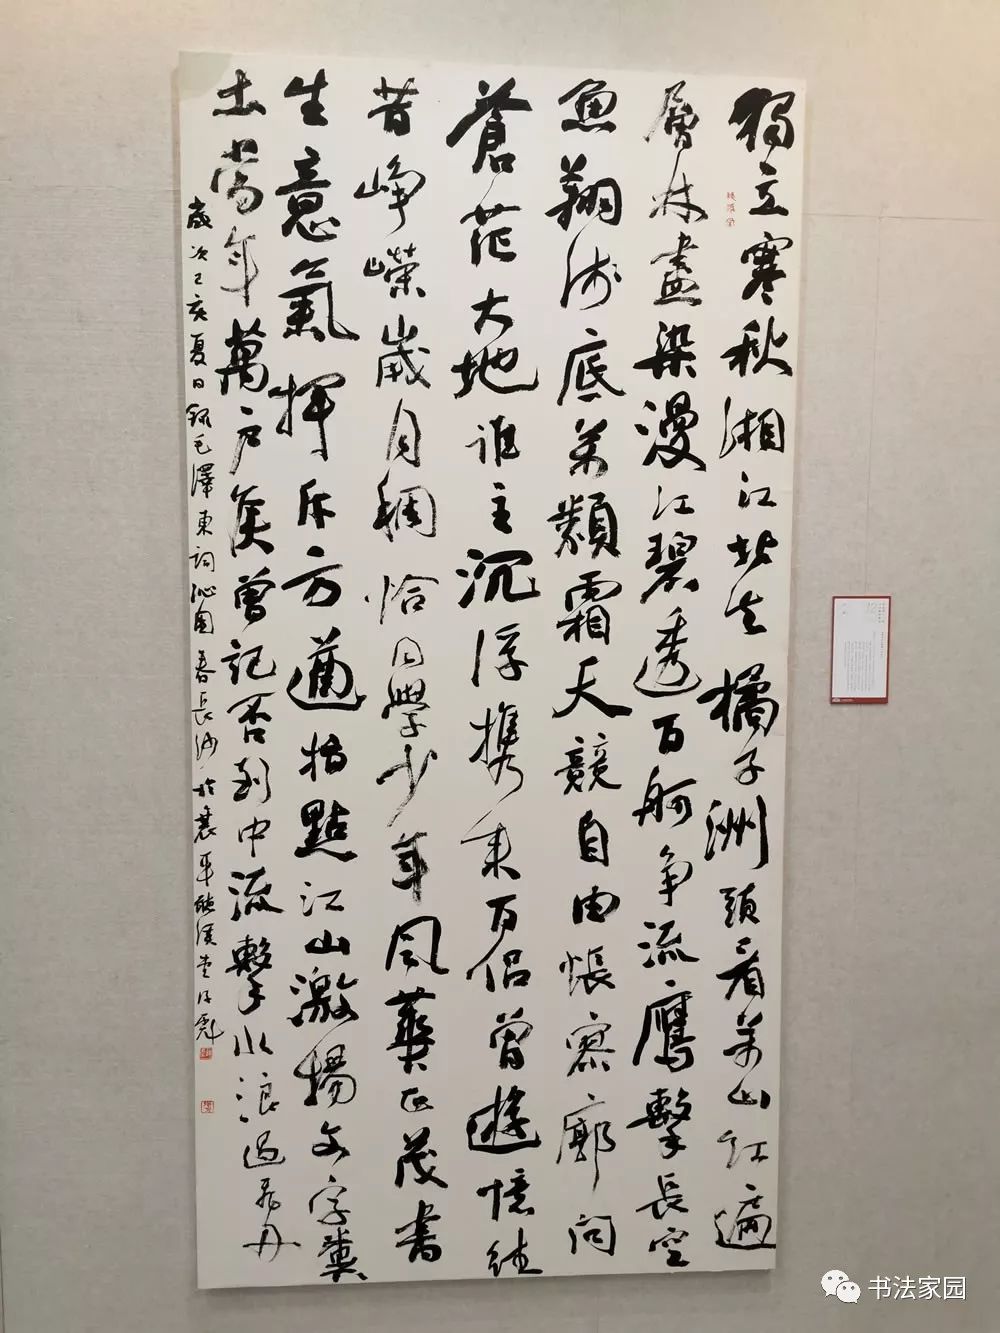 獨立寒秋湘江北去橘子洲頭看萬山紅遍
層林盡染漫江碧透百舸争流鷹擊長空
魚翔淺底萬類霜天競自由悵寥廓問
蒼茫大地誰主沉浮携來百侣曾遊憶往
昔崢嶸歲月稠恰同學少年風華正茂書
生意氣揮斥方遒指點江山激揚文字糞
土當年萬户侯曾記否到中流擊水浪遏飛舟
歲次己亥夏日録毛澤東詞沁園春長沙於襄平
书法家园